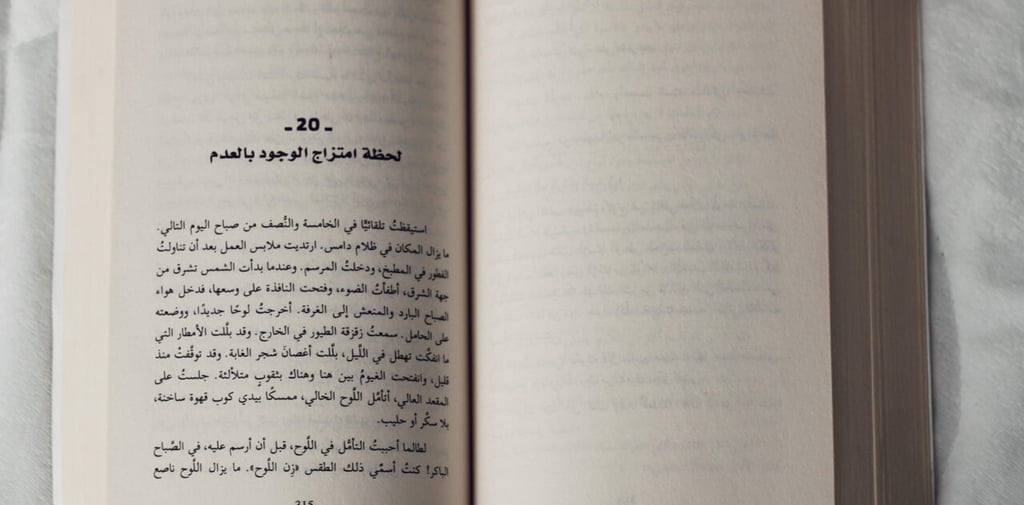 - 20 -
لحظة امتزاج الوجود بالعدم
استيقظتُ تلقائيًّا في الخامسة والنَّصف من صباح اليوم التالي.
ما يزال المكان في ظلام دامس. ارتديت ملابس العمل بعد أن تناولتُ
الفطور في المطبخ، ودخلتُ المرسم. وعندما بدأت الشمس تشرق من
جهة الشرق، أطفأتُ الضوء، وفتحت النافذة على وسعها، فدخل هواء
الصباح البارد والمنعش إلى الغرفة. أخرجتُ لوحًا جديدًا، ووضعته
على الحامل. سمعتُ زقزقة الطيور في الخارج. وقد بلَّلت الأمطار التي
ما انفكَّت تهطل في اللَّيل، بلَّلت أغصانَ شجر الغابة. وقد توقَّفتْ منذ
قليل، وانفتحت الغيومُ بين هنا وهناك بثقوبٍ متلألئة. جلستُ على
المقعد العالي، أتأمَّل اللَّوح الخالي، ممسكًا بيدي كوب قهوة ساخنة،
بلا سكَّر أو حليب.
لطالما أحببتُ التأمُّل في اللَّوح، قبل أن أرسم عليه، في الصَّباح
الباكر! كنتُ أسمّي ذلك الطقس «زِن اللَّوح». ما يزال اللَّوح ناصع
215